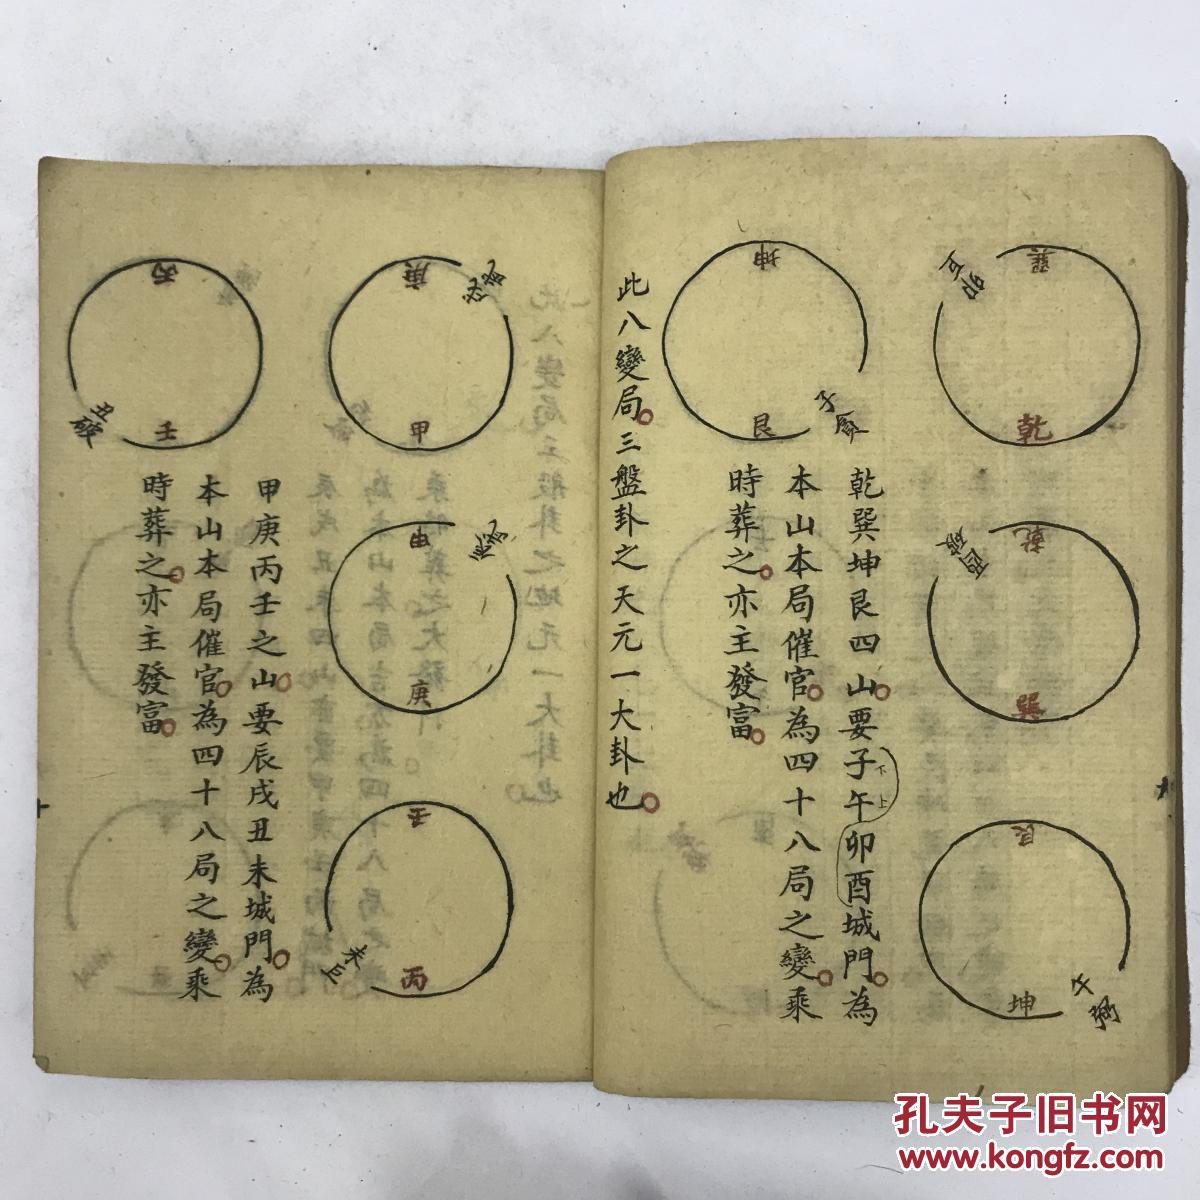 巽
卯巨
乾
乾
酉破
巽
艮
午弼
坤
乾巽坤艮四山要子午卯酉城門為
下上
本山本局催官為四十八局之變乘
時葬之亦主發富
坤
子貪
艮
此八變局三盤卦之天元一大卦也
庚
甲
甲
庚
壬
未巨
丙
甲庚丙壬之山要辰戌丑未城門為
本山本局催官為四十八局之變乘
時葬之亦主發富
丙
丑破
壬
孔夫子旧书网
www.kongfz.com